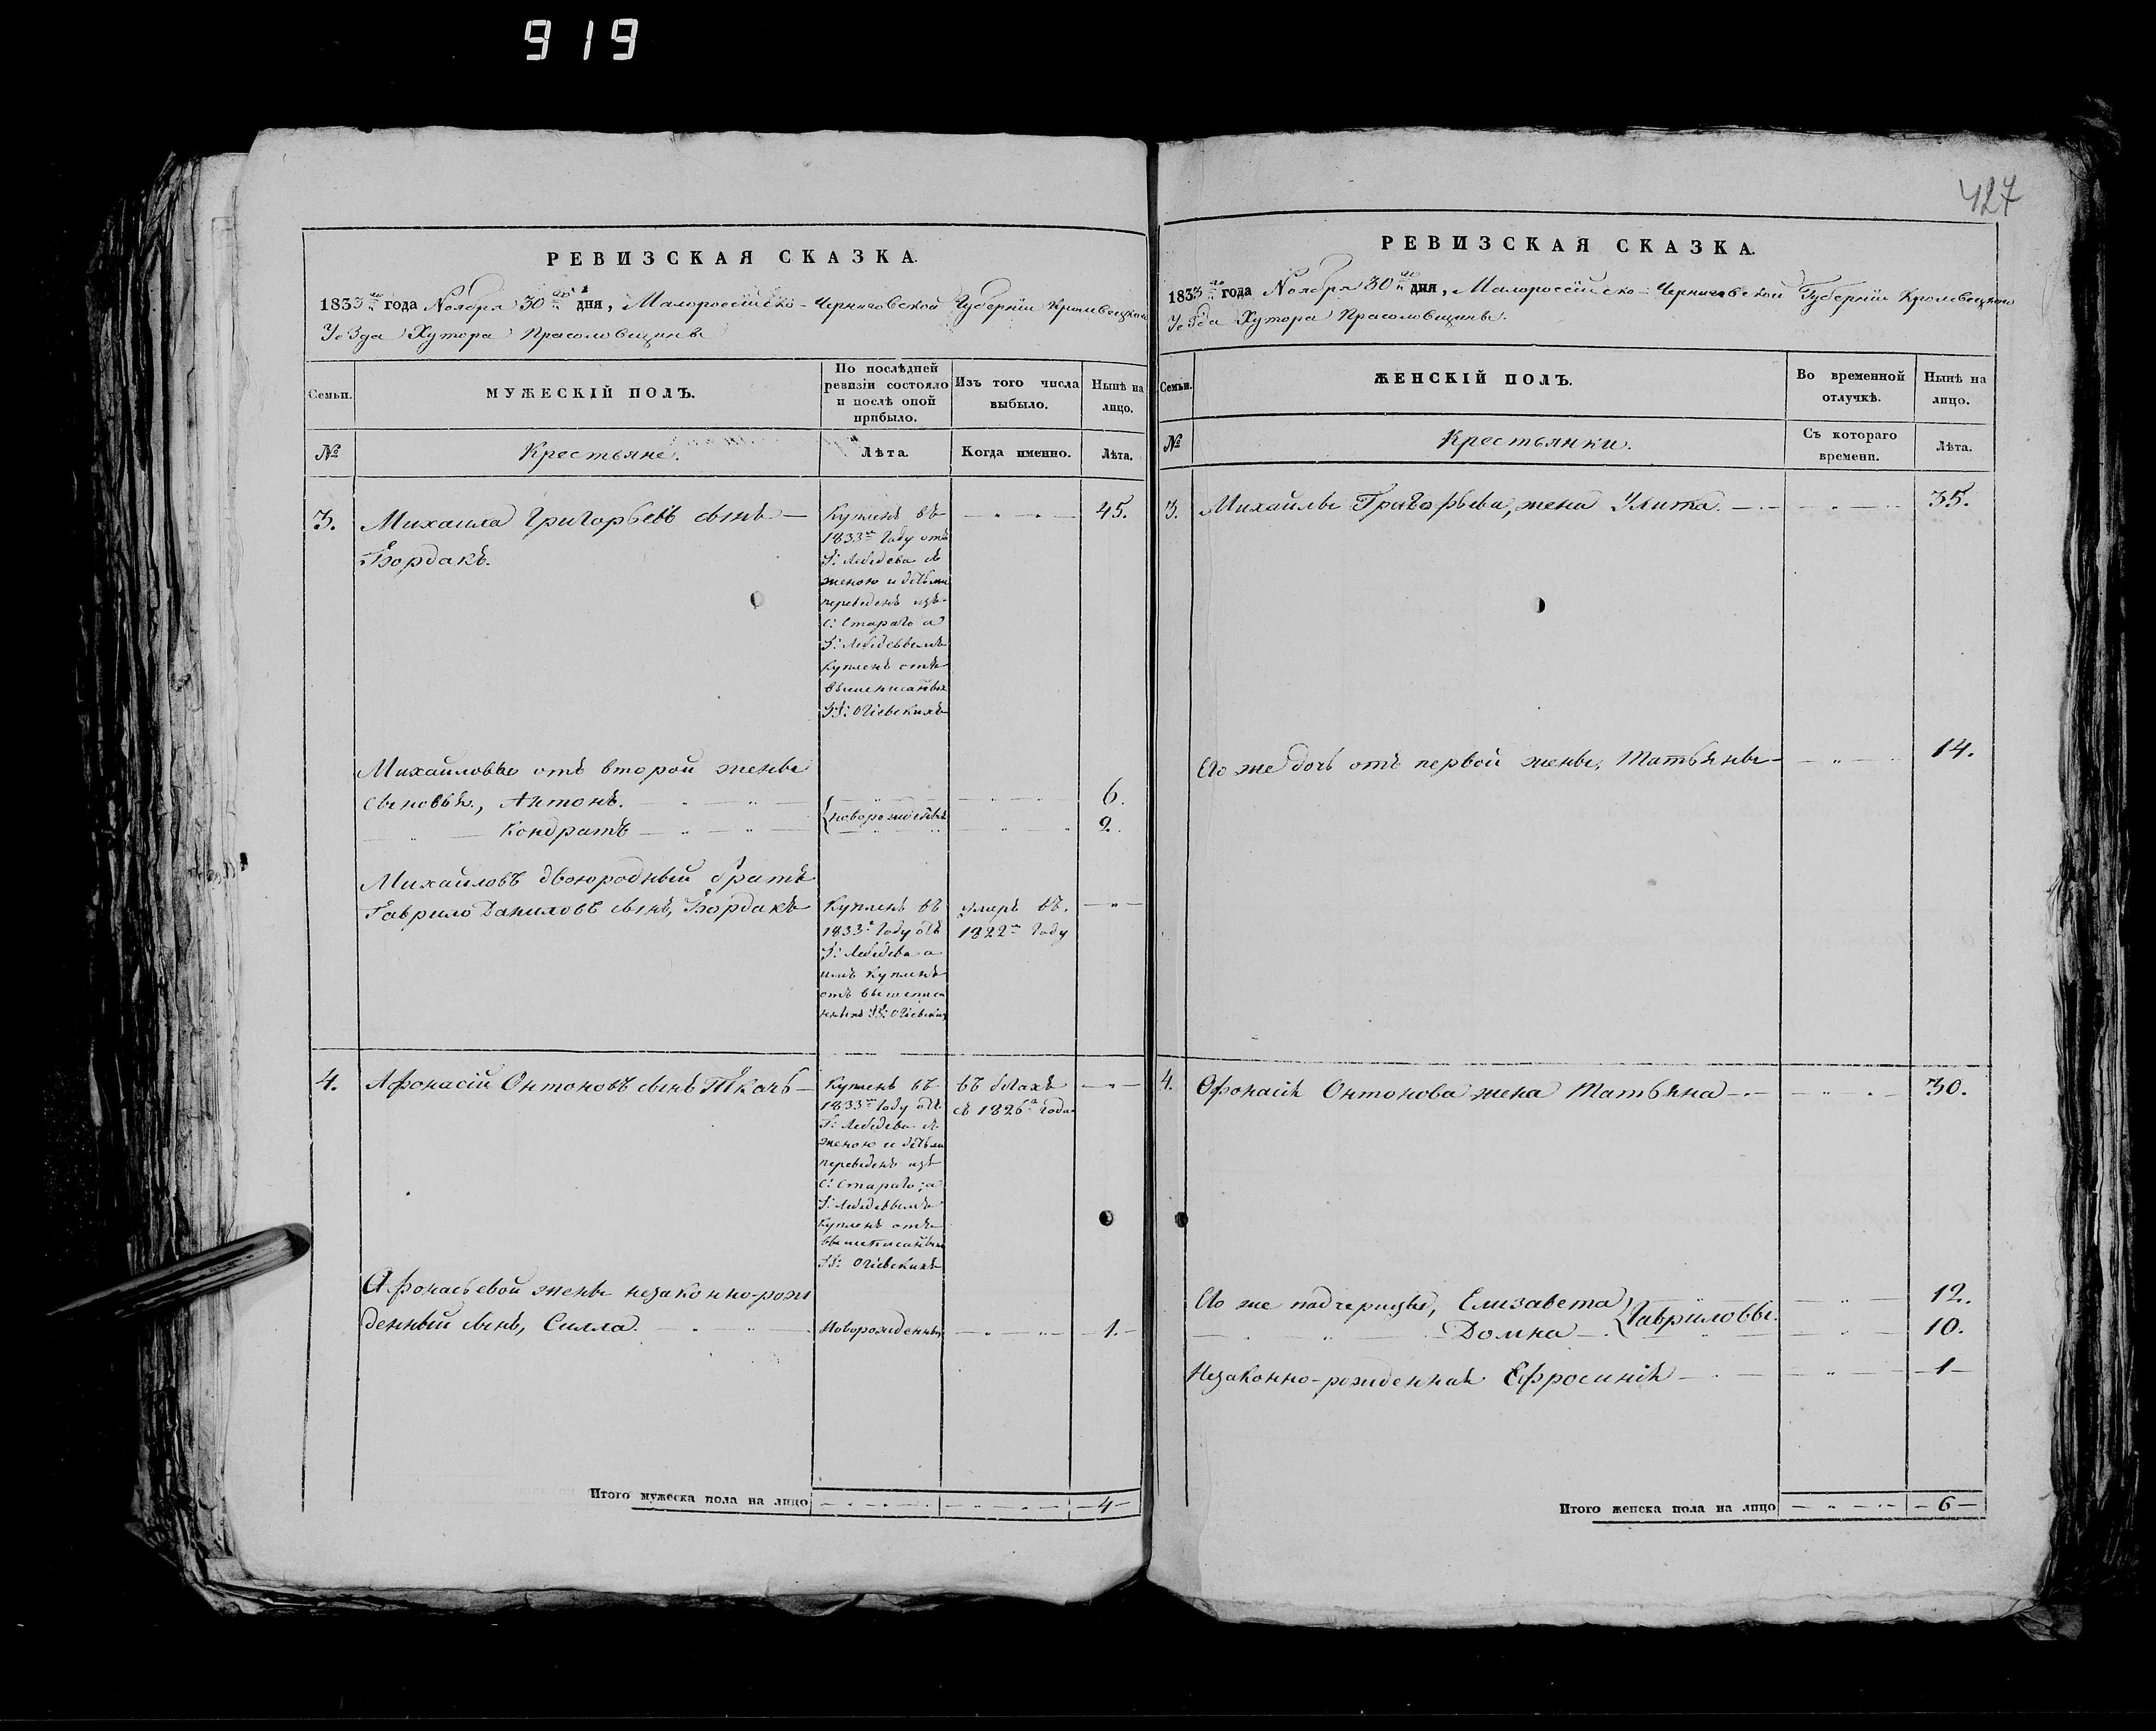 919
427
РЕВИЗСКАЯ СКАЗКА.
1833го года Ноября 30го дня, Малороссійско-Черниговской Губерніи Кролевецкого
Уезда Хутора Прасоловщины
Семьи.
МУЖЕСКІЙ ПОЛЪ.
По послѣдней ревизіи состояло и послѣ оной прибыло.
Изъ того числа выбыло.
Нынѣ на лицо.
№
Крестьяне.
Лѣта.
Когда именно.
Лѣта.
3. Михаила Григорьевъ сынъ
Бордакъ.
Купленъ въ
1833м Году отъ
Г: Лебедева съ
женою и дѣтьми
переведенъ изъ
С: Стараго а
Г: Лебедевымъ
Купленъ отъ
вышеписанных
ГГ: Огіевскихъ
45.
Михайловы отъ второй жены
сыновья, Антонъ.
новорожденные
6.
Кондратъ
2.
Михайловъ двоюродный братъ
Гаврило Даниловъ сынъ, Бордакъ
Купленъ въ
1833м Году отъ
Г: Лебедева а
имъ Купленъ
отъ вышеписа
нныхъ ГГ: Огіевских
умеръ въ
1822м Году
4. Афонасій Онтоновъ сынъ Ткачь
Купленъ въ
1833м Году отъ
Г: Лебедева съ
женою и дѣтьми
переведенъ изъ
С: Стараго; а
Г: Лебедевымъ
Купленъ отъ
вышеписанных
ГГ: Огіевскихъ
въ бѣгахъ
съ 1826го года
Афонасьевой жены незаконно-рож
денный сынъ, Силла.
Новорожденный
1.
Итого мужеска пола на лицо
4
РЕВИЗСКАЯ СКАЗКА.
1833го года Ноября 30го дня, Малороссійско-Черниговской Губерніи Кролевецкого
Уезда Хутора Прасоловщины.
Семьи.
ЖЕНСКІЙ ПОЛЪ.
Во временной отлучкѣ.
Нынѣ на лицо.
№
Крестьянки.
Съ котораго времени.
Лѣта.
3. Михайлы Григорьева, жена Улита.
35.
Его же дочь отъ первой жены, Татьяны
14.
4. Офонасія Онтонова жена Татьяна
30.
Его же падчерицы, Елизавета
Гавриловы.
12.
Домна
10.
Незаконно-рожденная Ефросинія
1
Итого женска пола на лицо
6